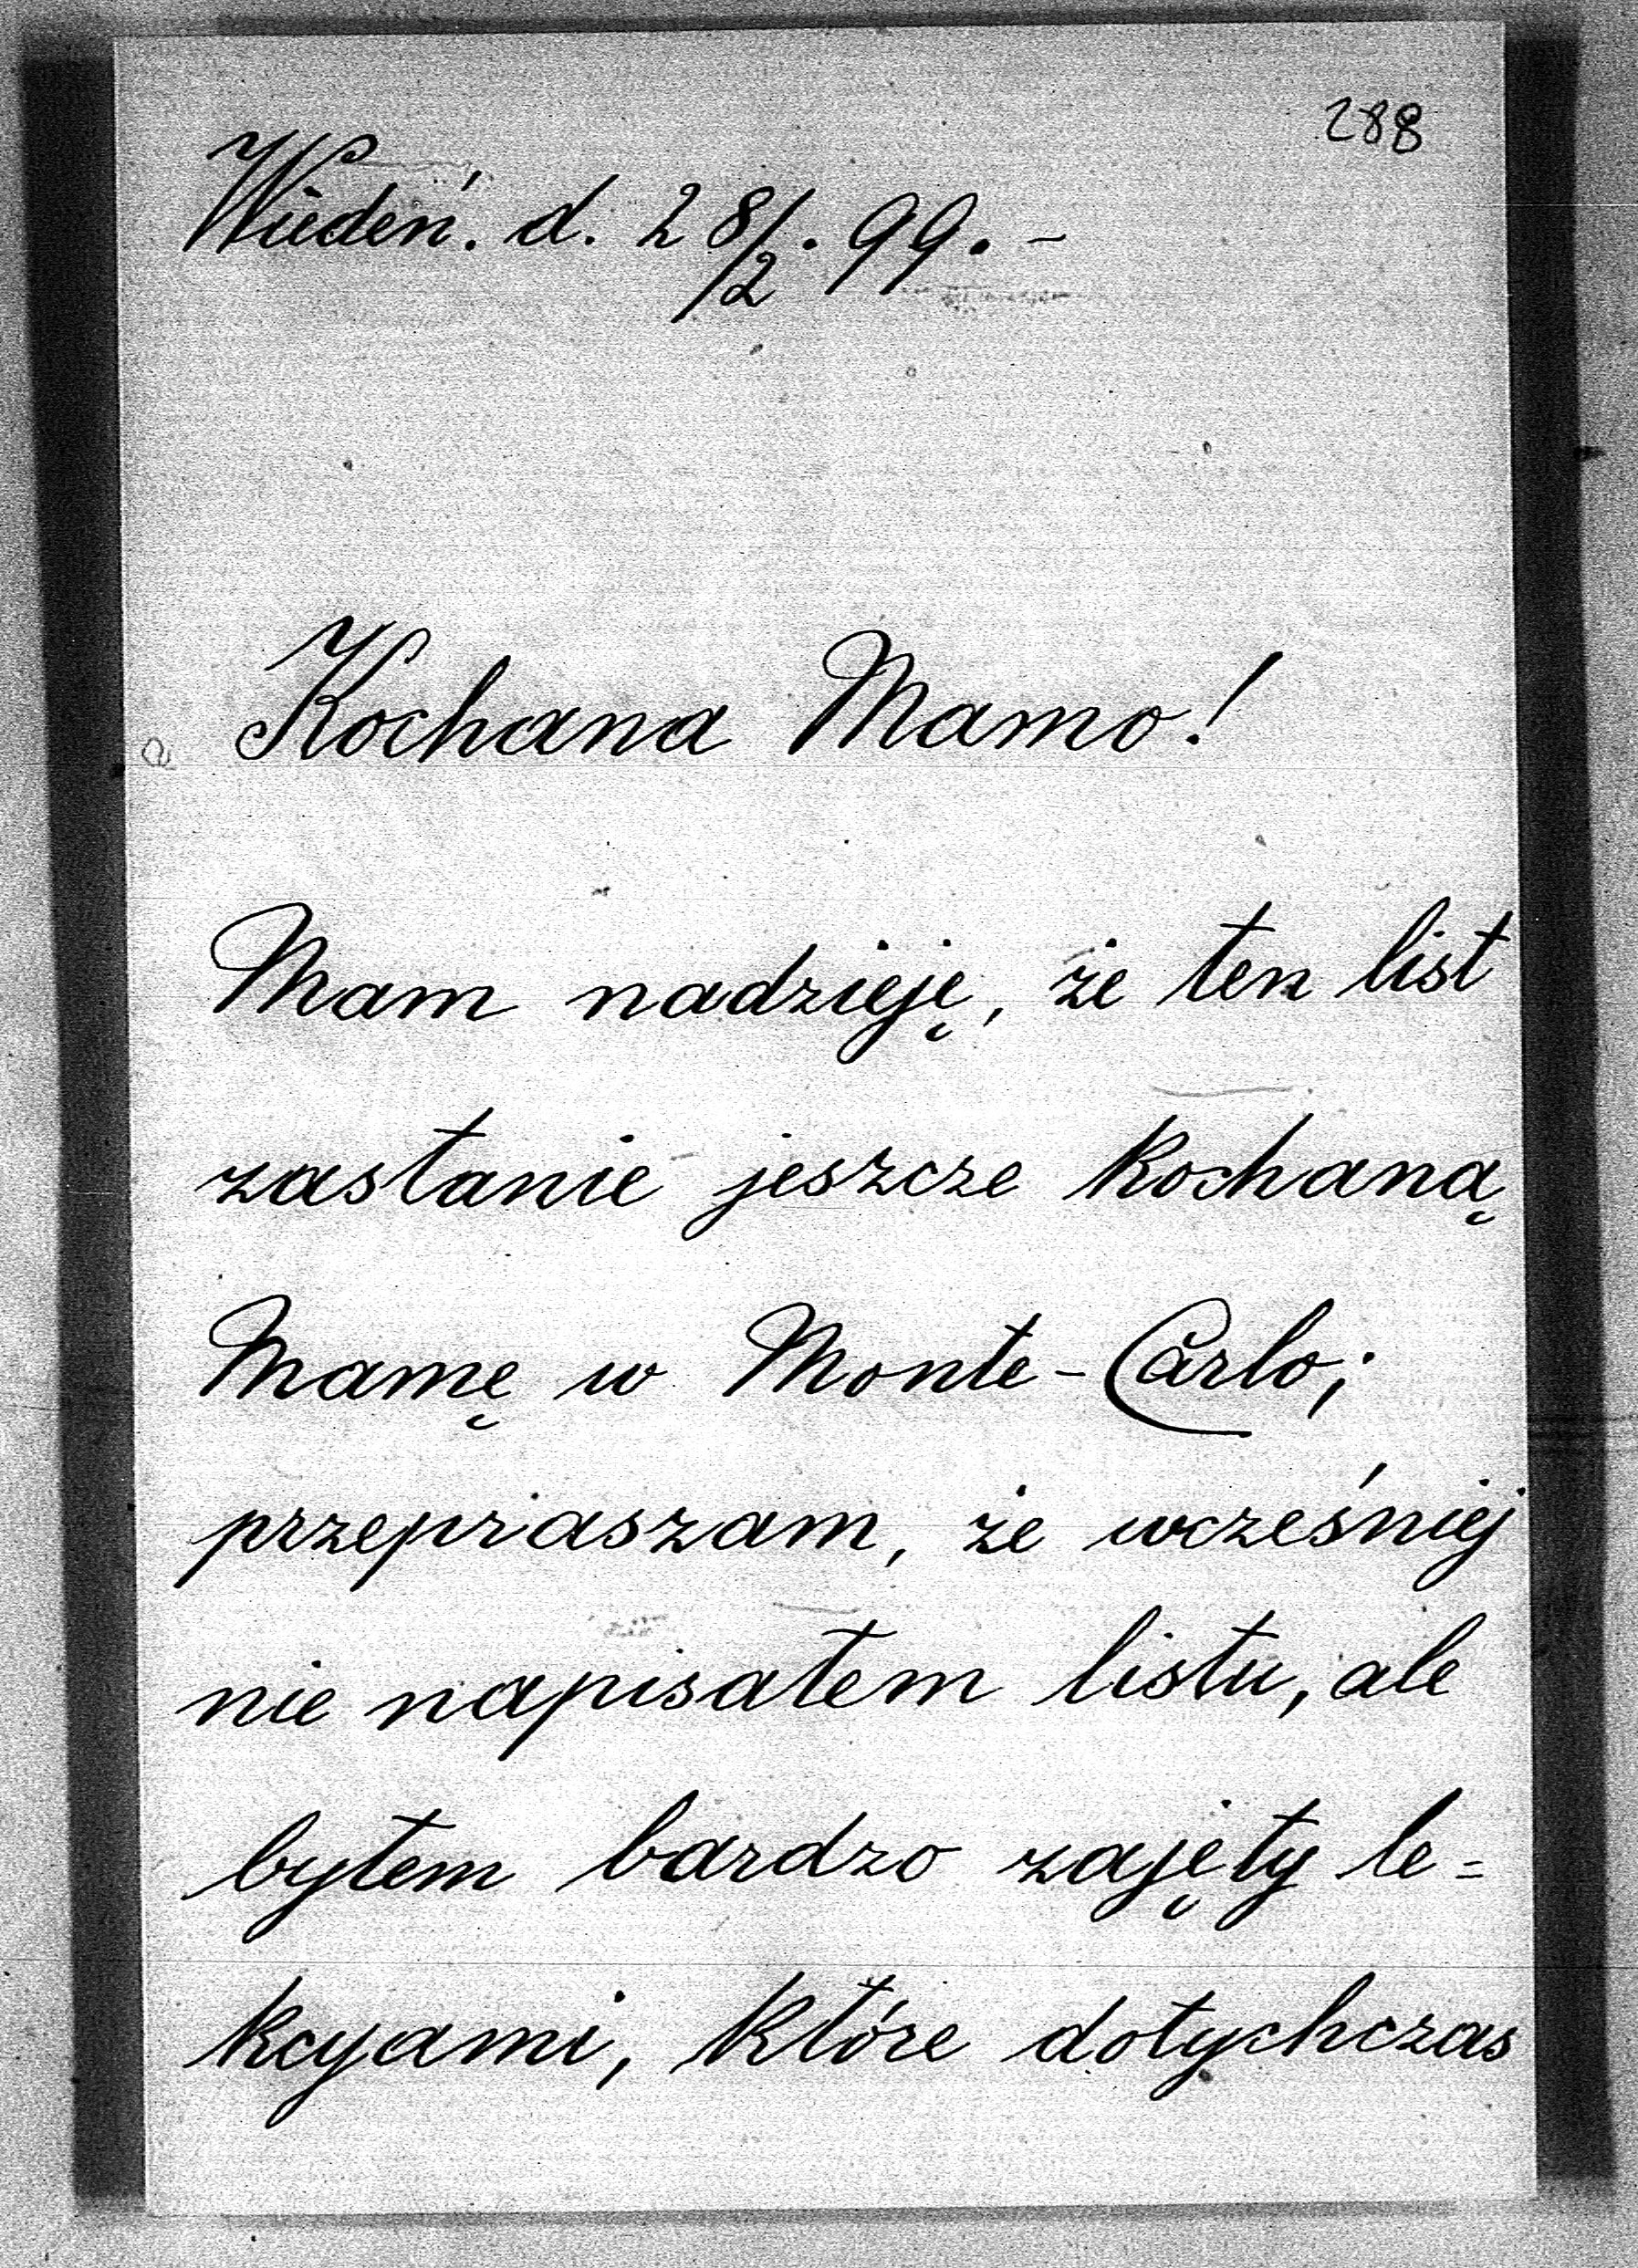 288
Wiedeń. d. 28/2. 99. -
Kochana Mamo!
Mam nadzieję, że ten list
zastanie jeszcze kochaną
Mamę w Monte-Carlo;
przepraszam, że wcześniej
nie napisałem listu, ale
byłem bardzo zajęty le=
kcyami, które dotychczas